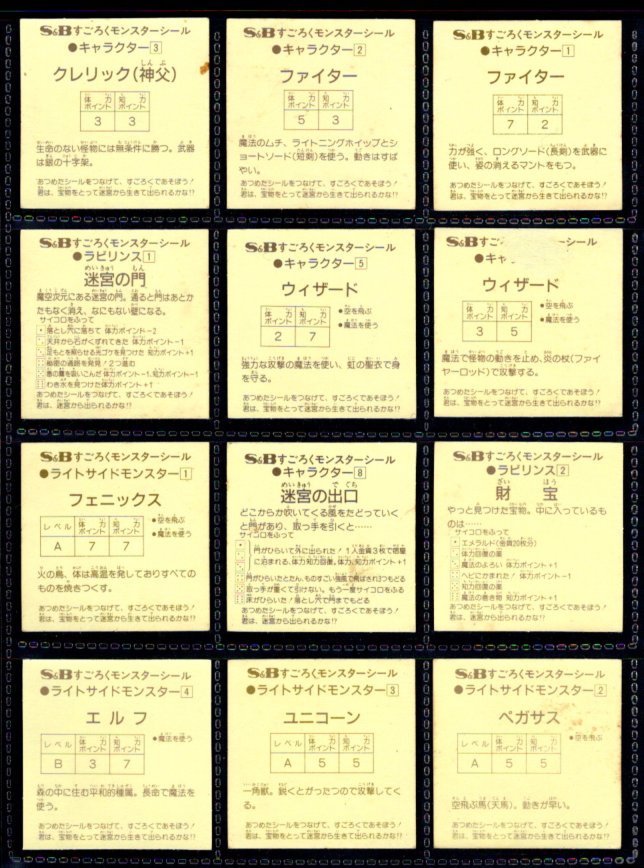 S&Bすごろくモンスターシール
●キャラクター3
クレリック(神父)
しんぷ
体力ポイント 知力ポイント
3 3
生命のない怪物には無条件に勝つ。武器
は銀の十字架。
あつめたシールをつなげて、すごろくであそぼう!
君は、宝物をとって迷宮から生きて出られるかな!?
S&Bすごろくモンスターシール
●キャラクター2
ファイター
体力ポイント 知力ポイント
5 3
魔法のムチ、ライトニングホイップとシ
ョートソード(短剣)を使う。動きはすば
やい。
あつめたシールをつなげて、すごろくであそぼう!
君は、宝物をとって迷宮から生きて出られるかな!?
S&Bすごろくモンスターシール
●キャラクター1
ファイター
体力ポイント 知力ポイント
7 2
力が強く、ロングソード(長剣)を武器に
使い、姿の消えるマントをもつ。
あつめたシールをつなげて、すごろくであそぼう!
君は、宝物をとって迷宮から生きて出られるかな!?
S&Bすごろくモンスターシール
●ラビリンス1
めいきゅう もん
迷宮の門
魔空次元にある迷宮の門。通ると門はあとか
たもなく消え、なにもない壁になる。
サイコロをふって
落とし穴に落ちて 体力ポイント−2
天井から石がくずれてきた 体力ポイント−1
足もとを照らせる光ゴケを見つけた 知力ポイント+1
秘密の通路を発見!2つ進む
悪の霧を吸いこんだ 体力ポイント−1、知力ポイント−1
わき水を見つけた 体力ポイント+1
あつめたシールをつなげて、すごろくであそぼう!
君は、迷宮から出られるかな!?
S&Bすごろくモンスターシール
●キャラクター5
ウィザード
体力ポイント 知力ポイント
2 7
●空を飛ぶ
●魔法を使う
強力な攻撃の魔法を使い、虹の聖衣で身
を守る。
あつめたシールをつなげて、すごろくであそぼう!
君は、宝物をとって迷宮から生きて出られるかな!?
S&B すごろくモンスターシール
●キャ
ウィザード
体力ポイント 知力ポイント
3 5
●空を飛ぶ
●魔法を使う
魔法で怪物の動きを止め、炎の杖(ファイ
ヤーロッド)で攻撃する。
あつめたシールをつなげて、すごろくであそぼう!
君は、宝物をとって迷宮から生きて出られるかな!?
S&Bすごろくモンスターシール
●ライトサイドモンスター1
フェニックス
レベル 体力ポイント 知力ポイント
A 7 7
●空を飛ぶ
●魔法を使う
火の鳥、体は高温を発しておりすべての
ものを焼きつくす。
あつめたシールをつなげて、すごろくであそぼう!
君は、宝物をとって迷宮から生きて出られるかな!?
S&Bすごろくモンスターシール
●キャラクター8
めいきゅう でぐち
迷宮の出口
どこからか吹いてくる風をたどっていく
と門があり、取っ手を引くと……
サイコロをふって
門がひらいて外に出られた!1人金貨3枚で宿屋
に泊まれる、体力知力回復。体力、知力ポイント+1
門がひらいたとたん、ものすごい強風で飛ばされ3つもどる
取っ手が重くて引けない。もう一度サイコロをふる
床がひらいた!落とし穴で門までもどる
あつめたシールをつなげて、すごろくであそぼう!
君は、迷宮から出られるかな!?
S&Bすごろくモンスターシール
●ラビリンス2
ざい ほう
財宝
やっと見つけた宝物。中に入っているも
のは……
サイコロをふって
エメラルド(金貨20枚分)
体力回復の薬
魔法のよろい 体力ポイント+1
ヘビにかまれた! 体力ポイント−1
知力回復の薬
魔法の巻き物 知力ポイント+1
あつめたシールをつなげて、すごろくであそぼう!
君は、迷宮から出られるかな!?
S&Bすごろくモンスターシール
●ライトサイドモンスター4
エルフ
レベル 体力ポイント 知力ポイント
B 3 7
●魔法を使う
森の中に住む平和的種属。長命で魔法を
使う。
あつめたシールをつなげて、すごろくであそぼう!
君は、宝物をとって迷宮から生きて出られるかな!?
S&Bすごろくモンスターシール
●ライトサイドモンスター3
ユニコーン
レベル 体力ポイント 知力ポイント
A 5 5
一角獣。鋭くとがったつので攻撃してく
る。
あつめたシールをつなげて、すごろくであそぼう!
君は、宝物をとって迷宮から生きて出られるかな!?
S&Bすごろくモンスターシール
●ライトサイドモンスター2
ペガサス
レベル 体力ポイント 知力ポイント
A 5 5
●空を飛ぶ
空飛ぶ馬(天馬)。動きが早い。
あつめたシールをつなげて、すごろくであそぼう!
君は、宝物をとって迷宮から生きて出られるかな!?